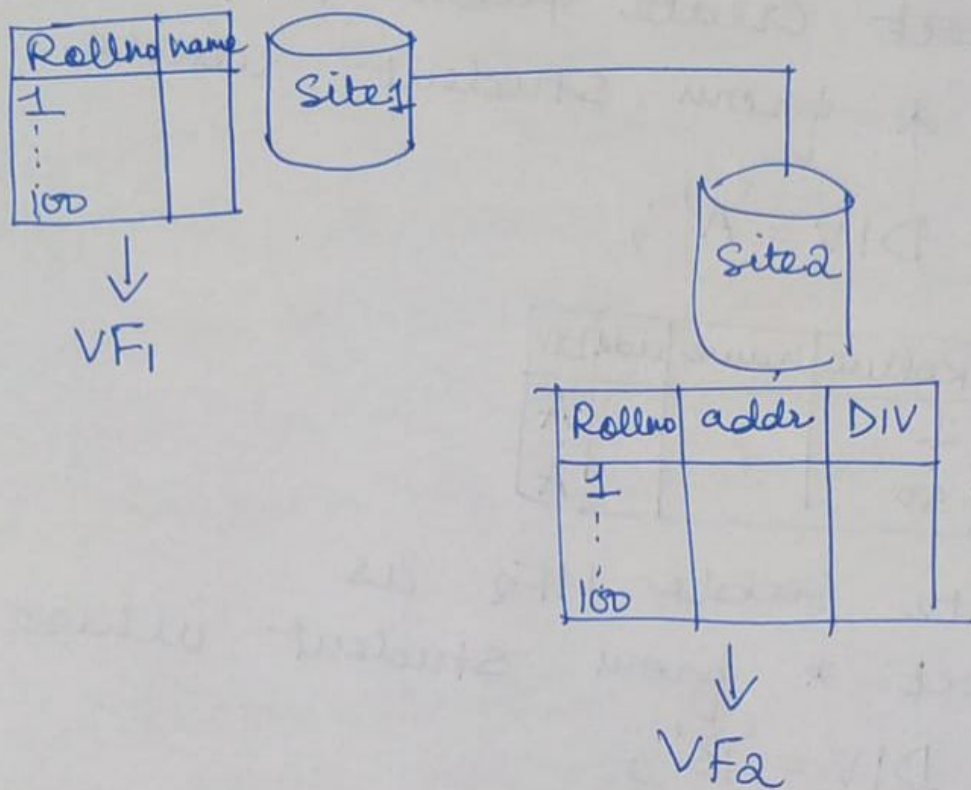 Rollno name
1
100
VF1
Site1
Site2
Rollno addr DIV
1
100
VF2